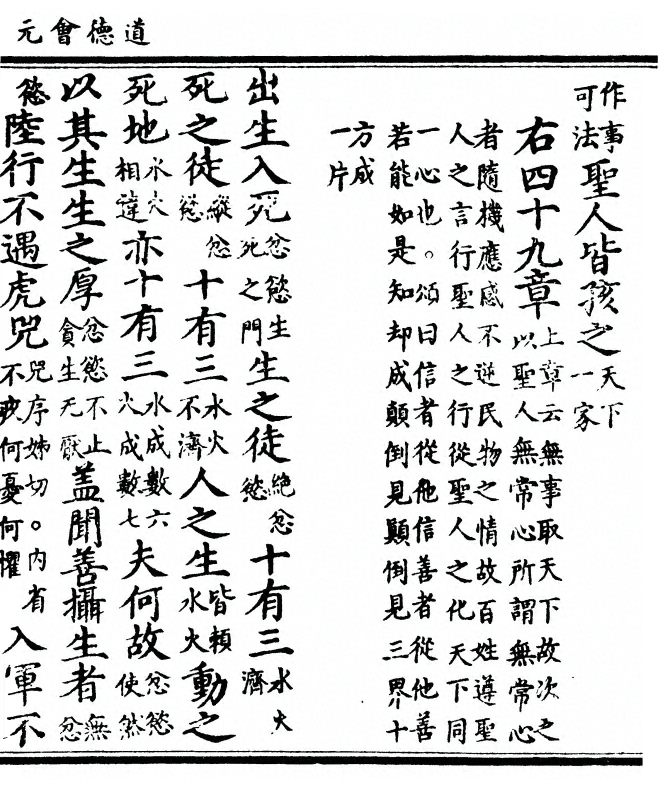 道德會元
作事可法聖人皆孩之天下一家
右四十九章上章云無事取天下故次之以聖人無常心所謂無常心
者隨機應感不逆民物之情故百姓遵聖人之言行聖人之行從聖人之化天下同
一心也。頌曰信者從他信善者從他善若能如是知却成顛倒見顛倒見三界十
方成一片
出生入死忿慾生死之門生之徒絕忿慾十有三水火濟
死之徒縱忿慾十有三水火不濟人之生皆賴水火動之
死地水火相違亦十有三水成數六火成數七夫何故忿慾使然
以其生生之厚忿慾不止貪生无厭蓋聞善攝生者無忿
慾陸行不遇虎兕兕序姊切。內省不疚何憂何懼入軍不